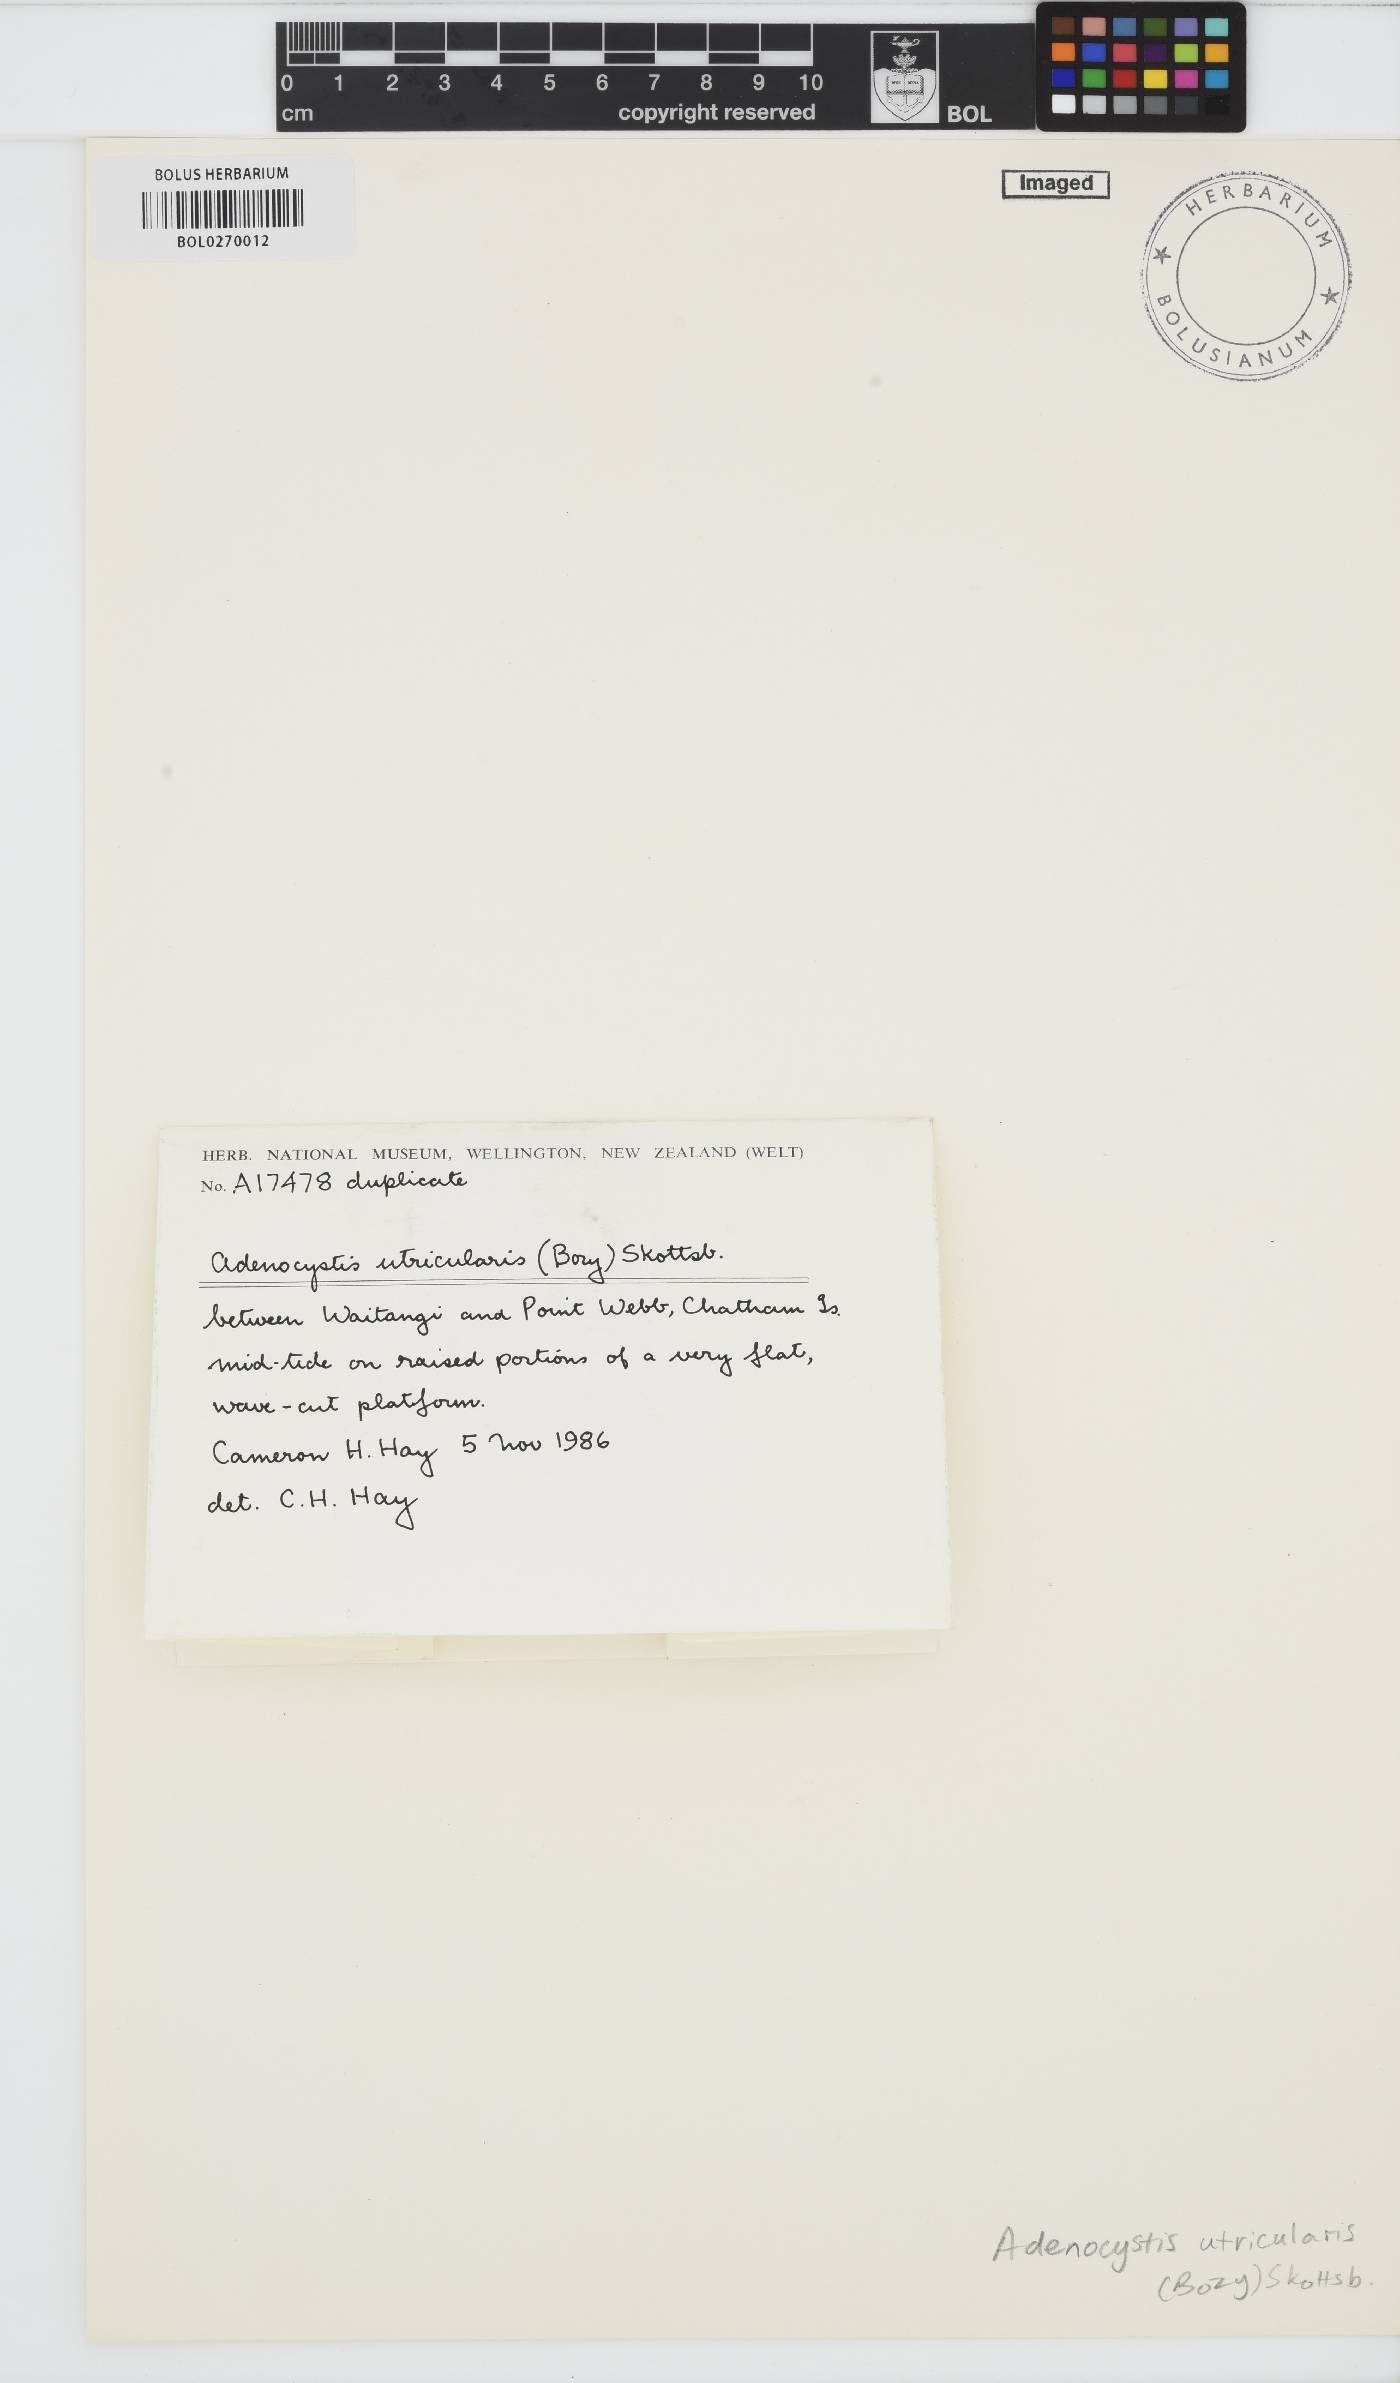 0 1 2 3 4 5 6 7 8 9 10
cm copyright reserved BOL
BOLUS HERBARIUM
BOL0270012
Imaged
HERBARIUM
BOLUSIANUM
HERB. NATIONAL MUSEUM, WELLINGTON, NEW ZEALAND (WELT)
No. A17478 duplicate
Adenocystis utricularis (Bory) Skottsb.
between Waitangi and Point Webb, Chatham Is.
mid-tide on raised portions of a very flat,
wave-cut platform.
Cameron H. Hay 5 Nov 1986
det. C.H. Hay
Adenocystis utricularis
(Bozy) Skottsb.